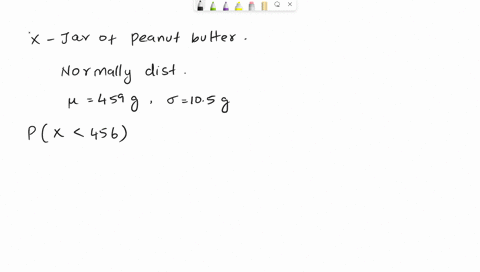 X - Jar of peanut butter.
Normally dist.
μ = 459 g, σ = 10.5 g
P(X < 456)